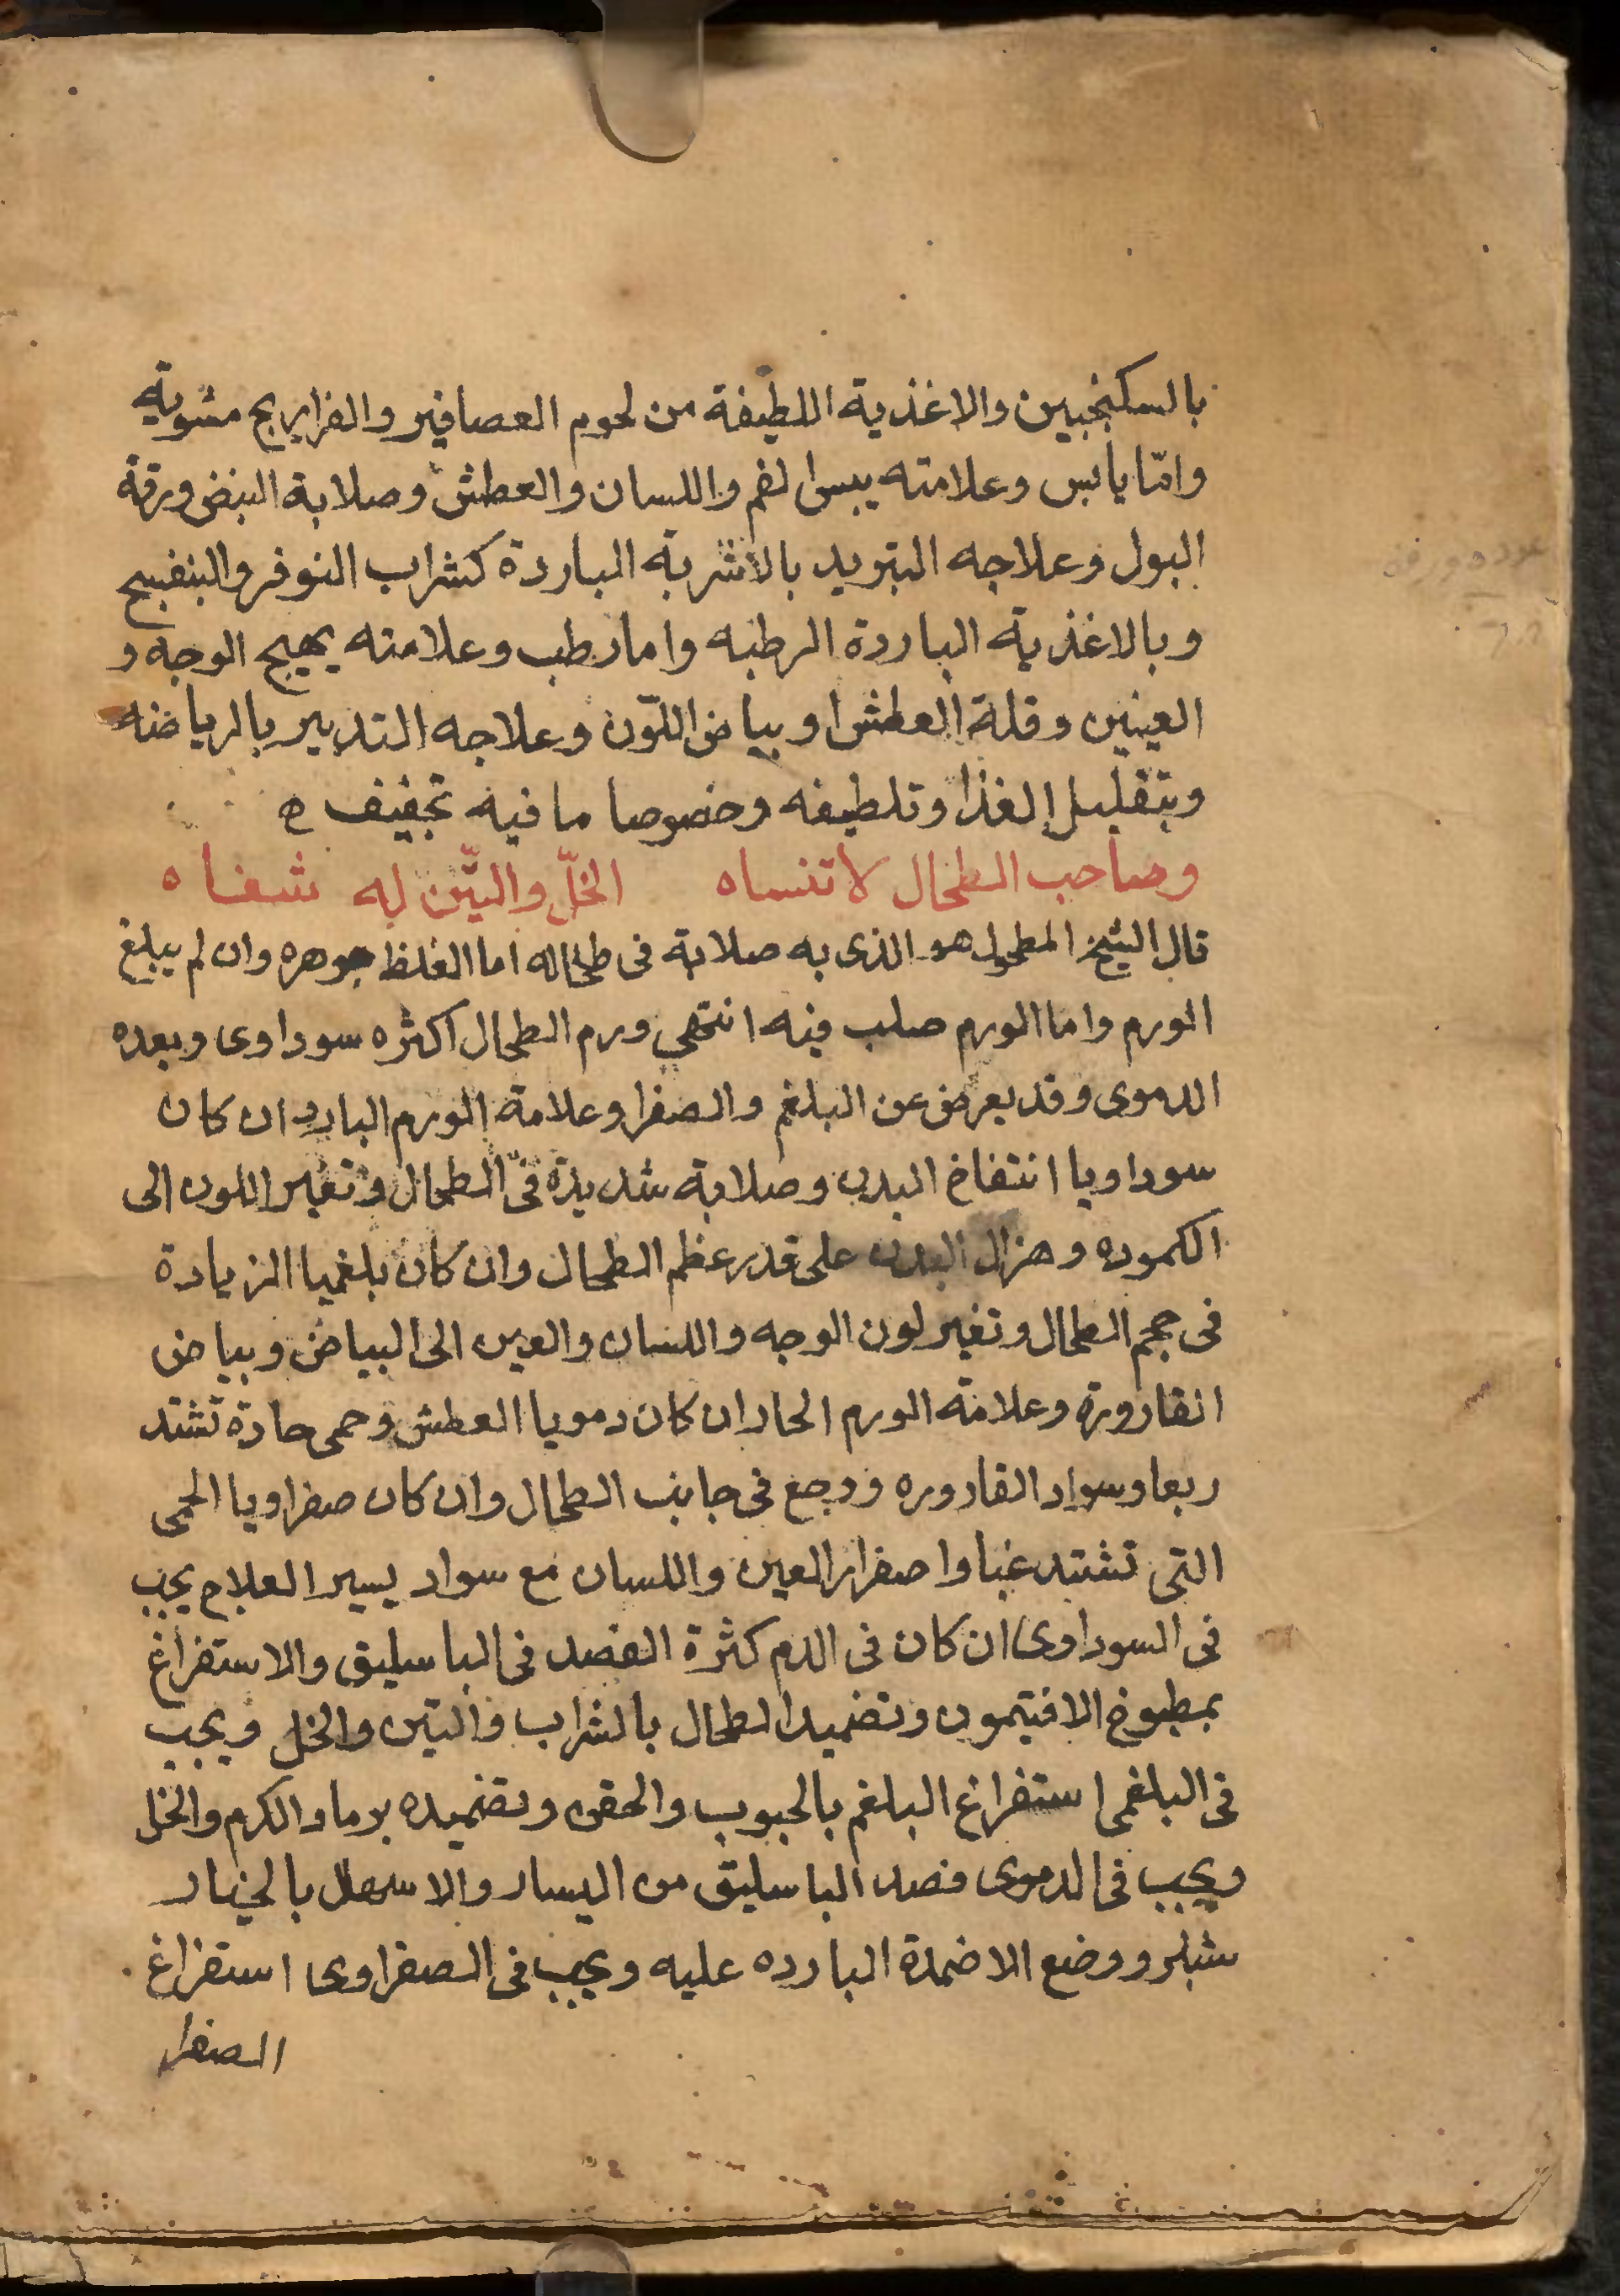 بالسكنجبين والاغذية اللطيفة من لحوم العصافير والفراريج مشوية
وامّا يابس وعلامته يبس الفم واللسان والعطش وصلابة النبض ورقة
البول وعلاجه التبريد بالاشربة الباردة كشراب النوفر والبنفسج
وبالاغذية الباردة الرطبه واما رطب وعلامته يهيج الوجه و
العينين وقلة العطش او بياض اللّون وعلاجه التدبير بالرياضه
وبتقليل الغذا وتلطيفه وخصوصا ما فيه تجفيف ه
وصاحب الطحال لا تنساه الخلّ والتّين له شفاه
قال الشيخ المطحول هو الذى به صلابة فى طحاله اما الغلظ جوهره وان لم يبلغ
الورم واما الورم صلب فيه انتهي ورم الطحال اكثره سوداوى وبعده
الدموى وقد يعرض عن البلغم والصفرا وعلامة الورم البارد ان كان
سوداويا انتفاخ البدن وصلابة شديدة فى الطحال وتغير اللون الى
الكموده وهزال البدن على قدر عظم الطحال وان كان بلغميا الزيادة
فى حجم الطحال وتغير لون الوجه واللسان والعين الى البياض وبياض
القارورة وعلامة الورم الحار ان كان دمويا العطش وحمى حادة تشتد
ربعا وسواد القاروره ووجع فى جانب الطحال وان كان صفراويا الحمى
التى تشتد غبا واصفرار العين واللسان مع سواد يسير العلاج يجب
فى السوداوى ان كان فى الدم كثرة الفصد فى الباسليق والاستفراغ
بمطبوخ الافتيمون وتضميد الطحال بالشراب والتين والخل ويجب
فى البلغمى استفراغ البلغم بالحبوب والحقن وتضميده برماد الكرم والخل
ويجب فى الدموى فصد الباسليق من اليسار والاسهال بالخيار
شنبر ووضع الاضمدة البارده عليه ويجب فى الصفراوى استفراغ
الصفرا